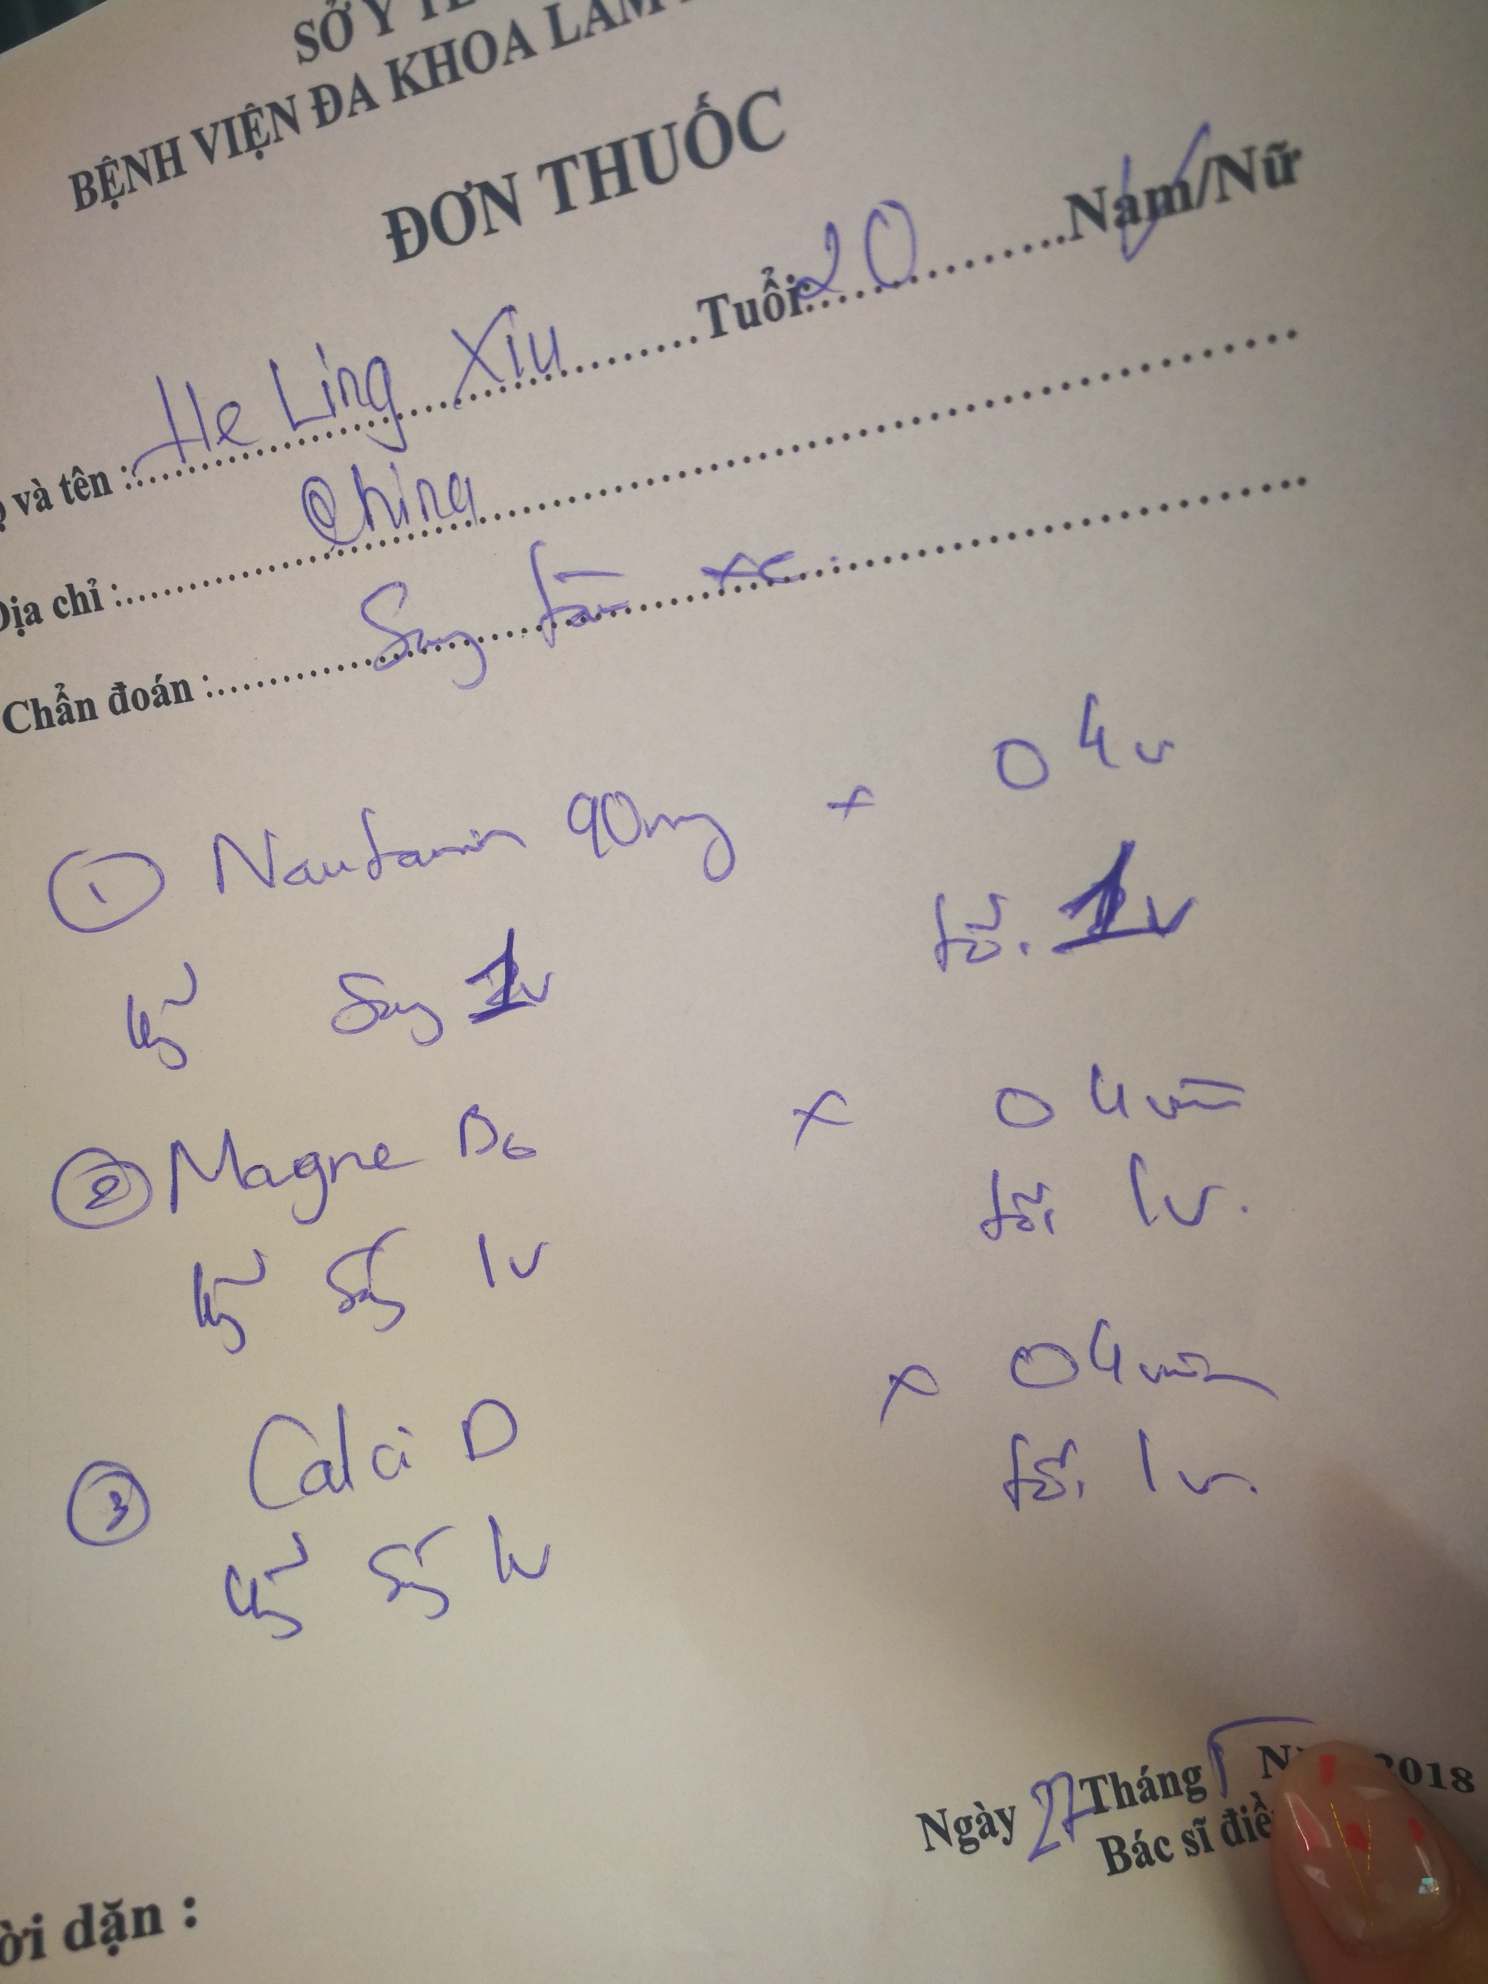 SỞ Y TẾ
BỆNH VIỆN ĐA KHOA LÂM
ĐƠN THUỐC
và tên : He Ling Xiu Tuổi: 20 Nam/Nữ
Địa chỉ : China
Chẩn đoán : Say tàu xe
① Nautamin 90mg x 04v
uống Sáng 1v tối 1v
② Magne B6 x 04 viên
uống Sáng 1v tối 1v.
③ Calci D x 04 viên
uống Sáng 1v tối 1v.
Ngày 27 Tháng 2018
Bác sĩ điề
ời dặn :